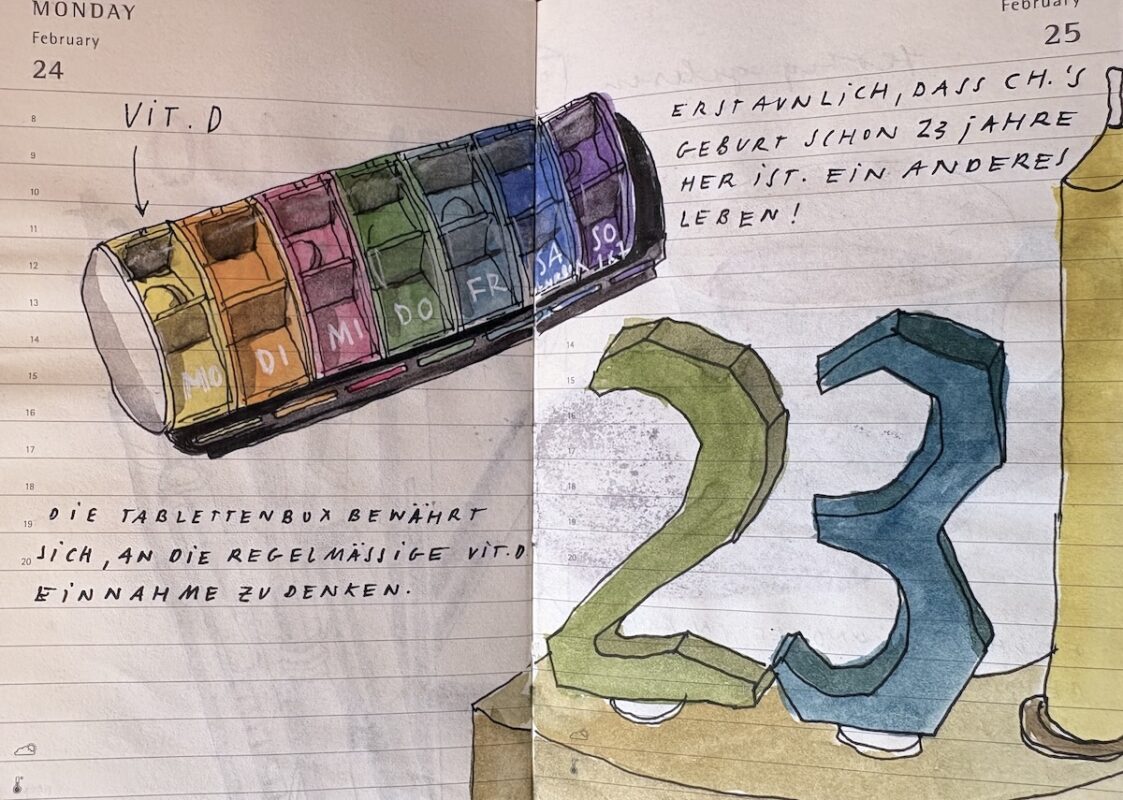 MONDAY
February
24
VIT. D
8
9
10
11
12
13
14
15
16
17
18
19
20
MO
DI
MI
DO
FR
SA
SO
DIE TABLETTENBOX BEWÄHRT
SICH, AN DIE REGELMÄSSIGE VIT.D
EINNAHME ZU DENKEN.
February
25
ERSTAUNLICH, DASS CH.'S
GEBURT SCHON 23 JAHRE
HER IST. EIN ANDERES
LEBEN!
14
15
16
17
18
19
20
23